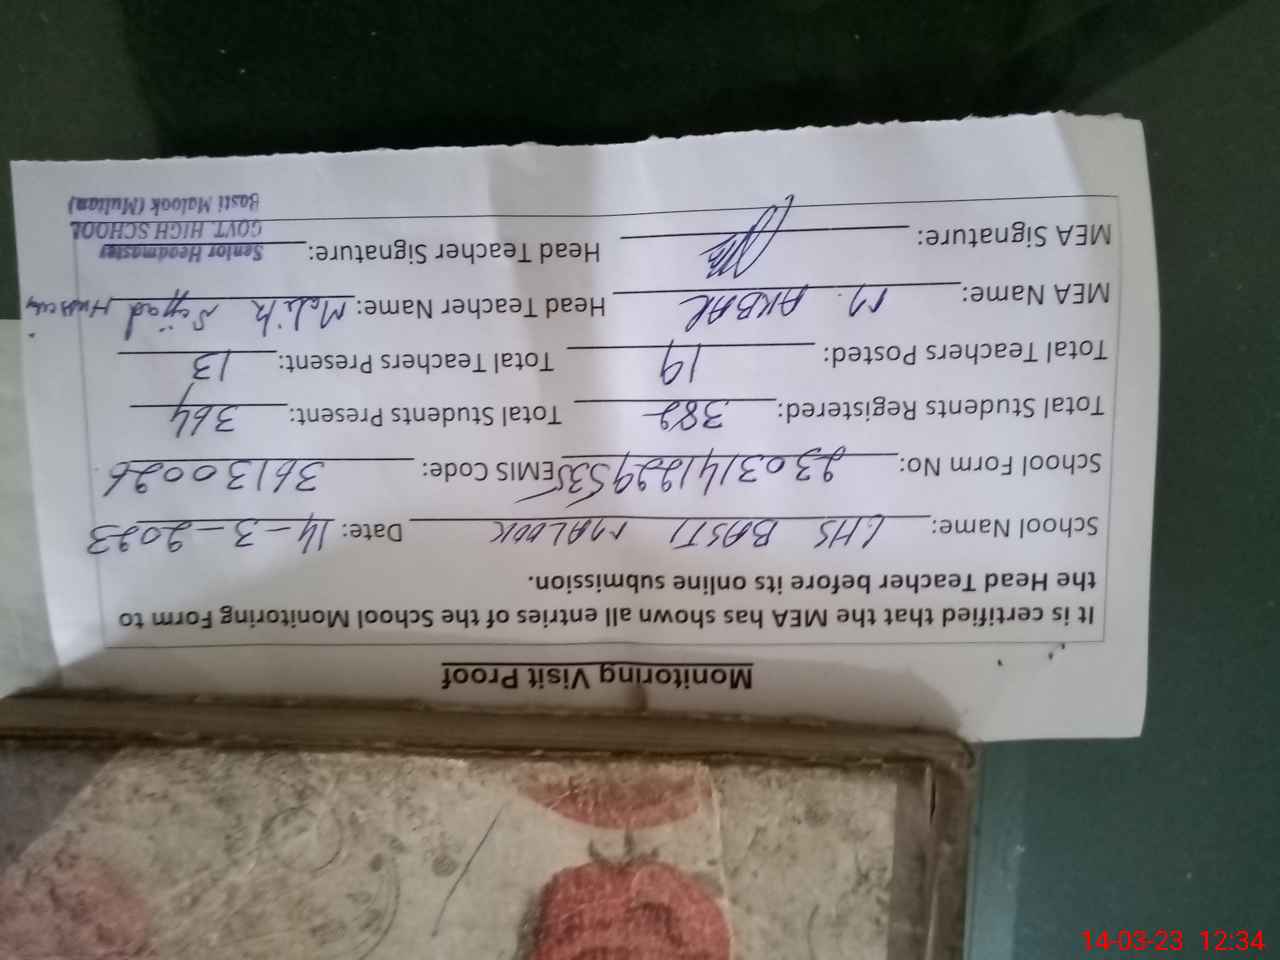 Monitoring Visit Proof
It is certified that the MEA has shown all entries of the School Monitoring Form to
the Head Teacher before its online submission.
School Name: GHS BASTI MALOOK Date: 14-3-2023
School Form No: EMIS Code: 36130026
Total Students Registered: 382 Total Students Present: 364
Total Teachers Posted: 19 Total Teachers Present: 13
MEA Name: M. AKBAR Head Teacher Name: Malik Sajjad Hussain
MEA Signature: Head Teacher Signature:
Senior Headmaster
GOVT. HIGH SCHOOL
Basti Malook (Multan)
14-03-23 12:34